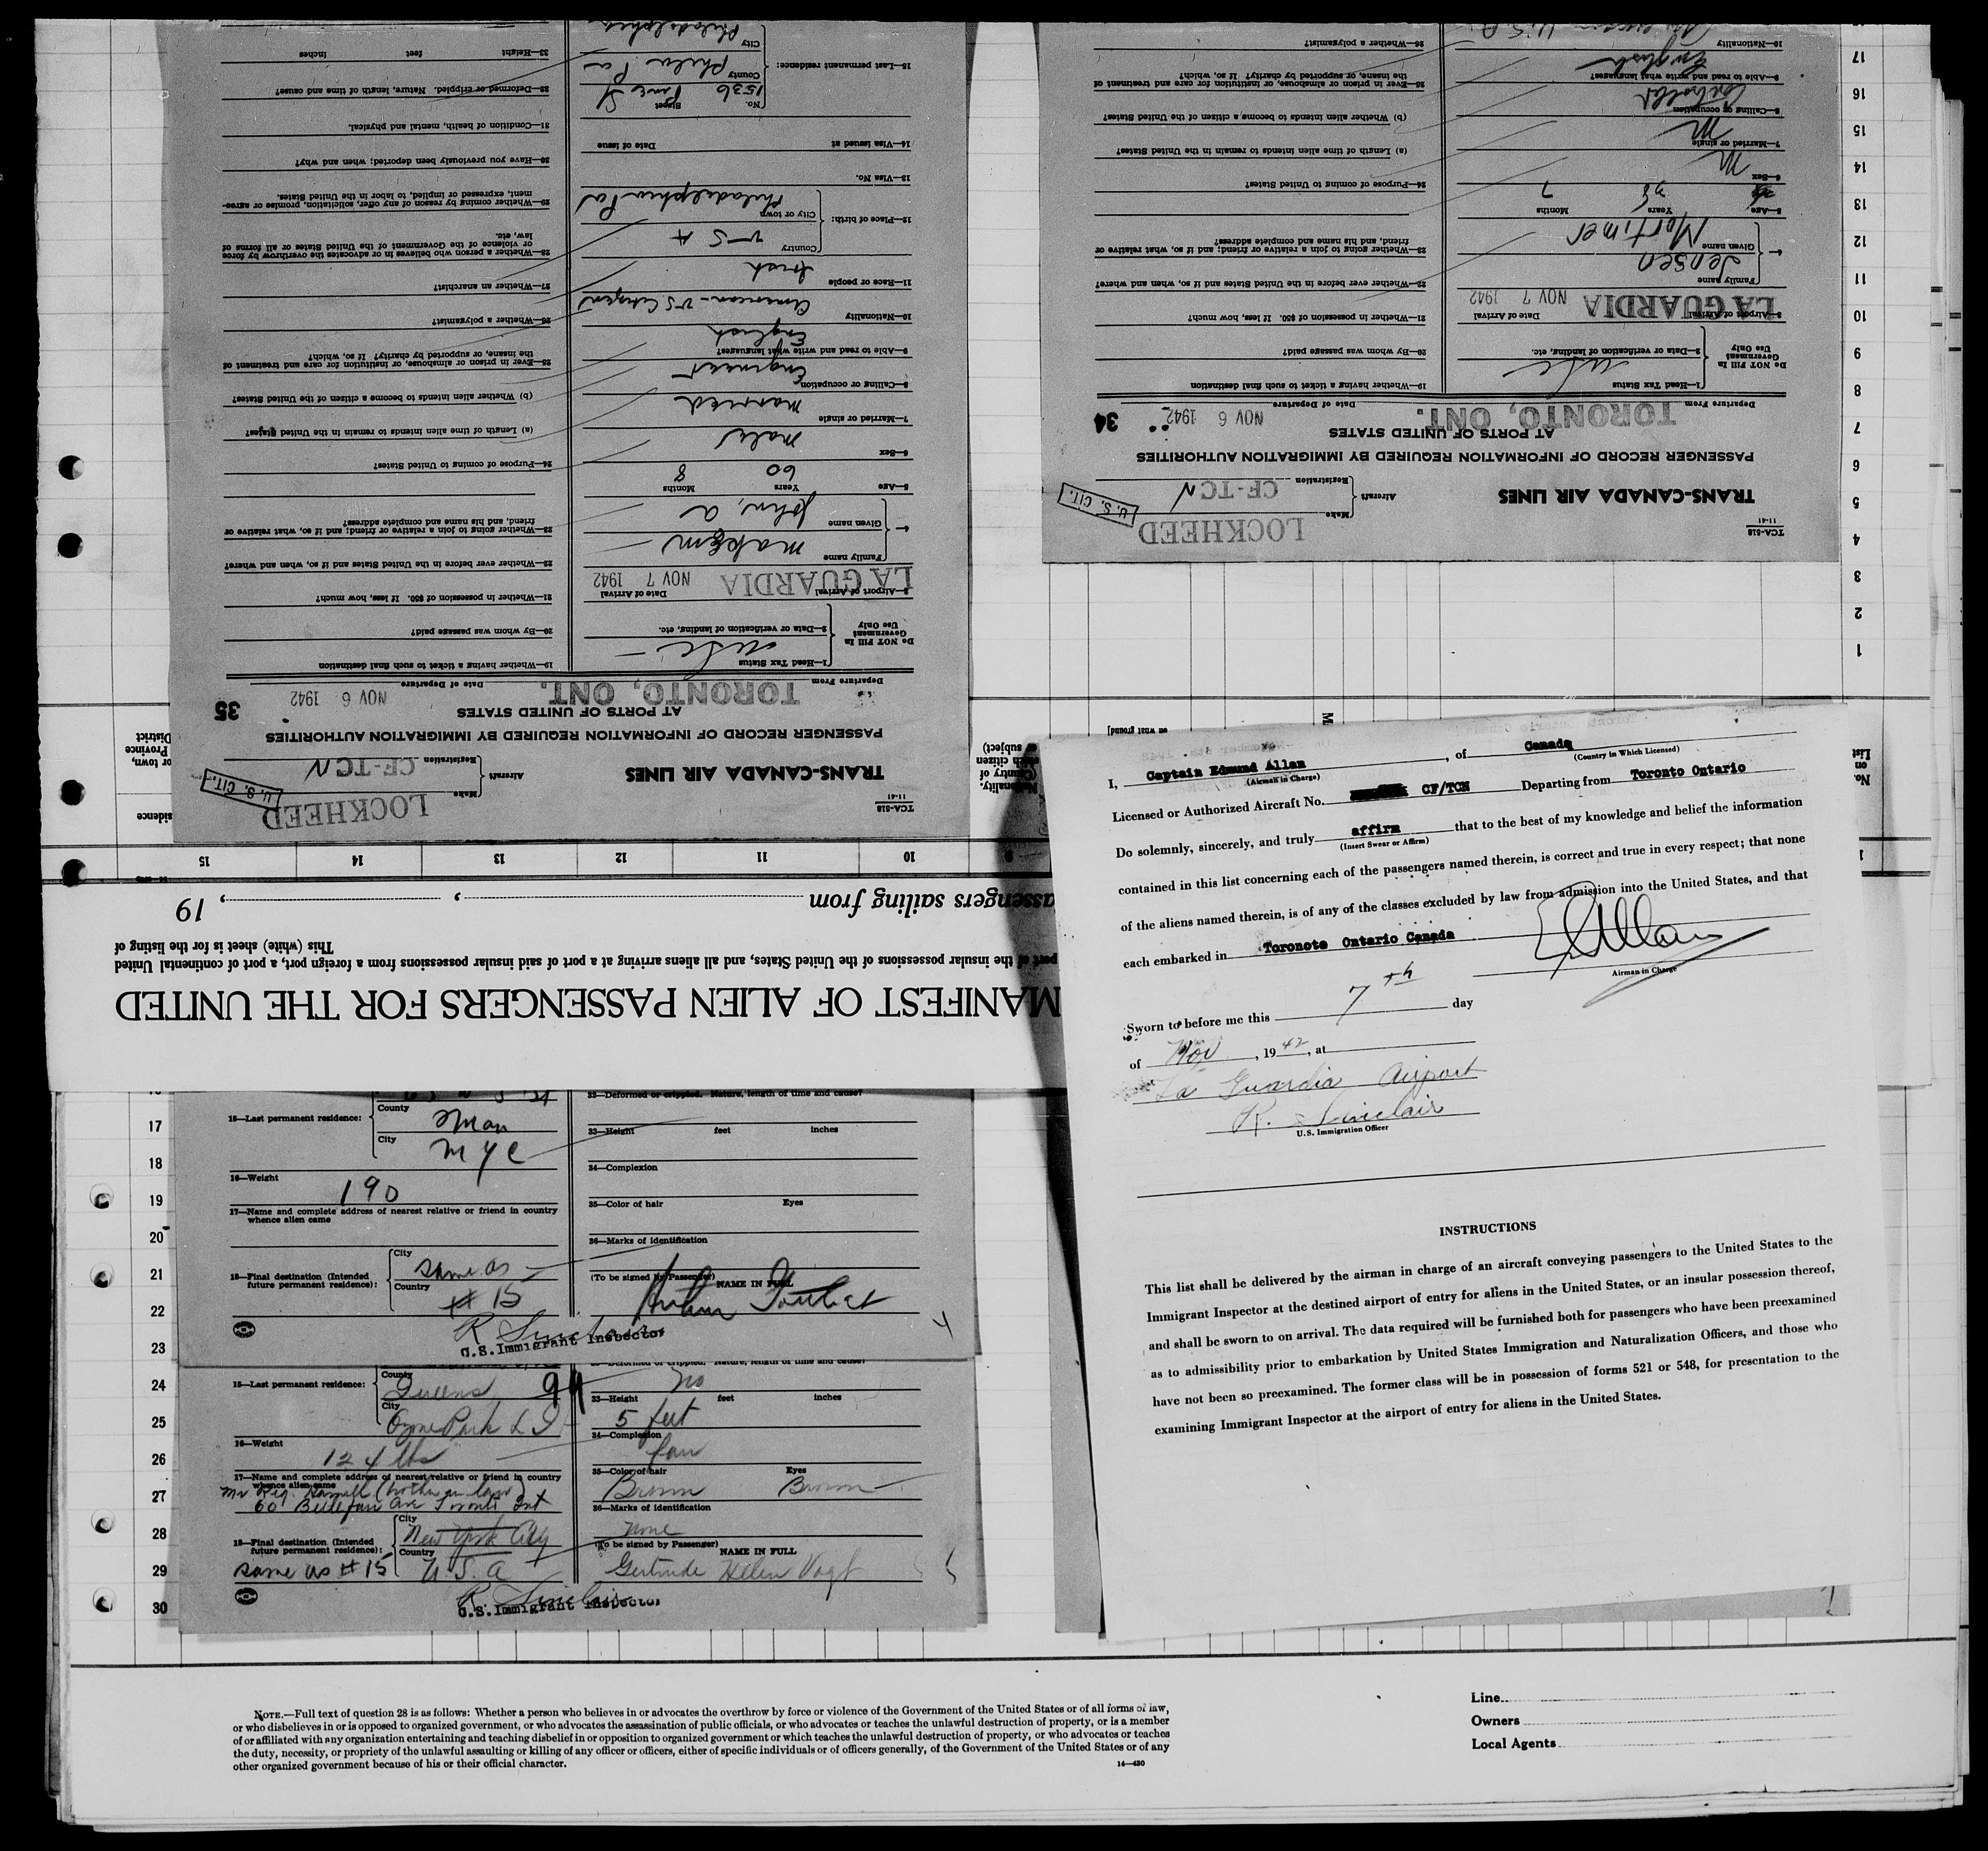 TCA-518
11-41
TRANS-CANADA AIR LINES
Aircraft
Make LOCKHEED
Registration CF-TCN
U. S. CIT.
PASSENGER RECORD OF INFORMATION REQUIRED BY IMMIGRATION AUTHORITIES
AT PORTS OF UNITED STATES
35
Departure From TORONTO, ONT.
Date of Departure NOV 6 1942
Do NOT Fill In
Government
Use Only
1—Head Tax Status
2—Data or verification of landing, etc.
3—Airport of Arrival LA GUARDIA
Date of Arrival NOV 7 1942
4—
Family name
Given name John, A
5—Age
Years 60
Months 8
6—Sex male
7—Married or single married
8—Calling or occupation Engineer
9—Able to read and write what languages? English
10—Nationality American - U S Citizen
11—Race or people Irish
12—Place of birth:
Country U S A
City or town Philadelphia Pa
13—Visa No.
14—Visa issued at
Date of issue
15—Last permanent residence:
No. 1536
Street Pine St
County Phila Pa
City Philadelphia
19—Whether having a ticket to such final destination
20—By whom was passage paid?
21—Whether in possession of $50. If less, how much?
22—Whether ever before in the United States and if so, when and where?
23—Whether going to join a relative or friend; and if so, what relative or
friend, and his name and complete address?
24—Purpose of coming to United States?
(a) Length of time alien intends to remain in the United States?
(b) Whether alien intends to become a citizen of the United States?
25—Ever in prison or almshouse, or institution for care and treatment of
the insane, or supported by charity? If so, which?
26—Whether a polygamist?
27—Whether an anarchist?
28—Whether a person who believes in or advocates the overthrow by force
or violence of the Government of the United States or all forms of
law, etc.
29—Whether coming by reason of any offer, solicitation, promise or agree-
ment, expressed or implied, to labor in the United States.
30—Have you previously been deported; when and why?
31—Condition of health, mental and physical.
32—Deformed or crippled. Nature, length of time and cause?
33—Height feet inches
TCA-518
11-41
TRANS-CANADA AIR LINES
Aircraft
Make LOCKHEED
Registration CF-TCN
U. S. CIT.
PASSENGER RECORD OF INFORMATION REQUIRED BY IMMIGRATION AUTHORITIES
AT PORTS OF UNITED STATES
34
Departure From TORONTO, ONT.
Date of Departure NOV 6 1942
Do NOT Fill In
Government
Use Only
1—Head Tax Status
2—Data or verification of landing, etc.
3—Airport of Arrival LA GUARDIA
Date of Arrival NOV 7 1942
4—
Family name Jensen
Given name Mortimer
5—Age
Years 38
Months 7
6—Sex M
7—Married or single M
8—Calling or occupation Controller
9—Able to read and write what languages? English
10—Nationality American U.S.A.
19—Whether having a ticket to such final destination
20—By whom was passage paid?
21—Whether in possession of $50. If less, how much?
22—Whether ever before in the United States and if so, when and where?
23—Whether going to join a relative or friend; and if so, what relative or
friend, and his name and complete address?
24—Purpose of coming to United States?
(a) Length of time alien intends to remain in the United States?
(b) Whether alien intends to become a citizen of the United States?
25—Ever in prison or almshouse, or institution for care and treatment of
the insane, or supported by charity? If so, which?
26—Whether a polygamist?
1
2
3
4
5
6
7
8
9
10
11
12
13
14
15
16
17
MANIFEST OF ALIEN PASSENGERS FOR THE UNITED
port of the insular possessions of the United States, and all aliens arriving at a port of said insular possessions from a foreign port, a port of continental United
This (white) sheet is for the listing of
assengers sailing from , , 19
9 10 11 12 13 14 15
No.
on
List
I, Captain Edmund Allan, of Canada
(Airman in Charge) (Country in Which Licensed)
Licensed or Authorized Aircraft No. CF/TCN Departing from Toronto Ontario
Do solemnly, sincerely, and truly affirm that to the best of my knowledge and belief the information
(Insert Swear or Affirm)
contained in this list concerning each of the passengers named therein, is correct and true in every respect; that none
of the aliens named therein, is of any of the classes excluded by law from admission into the United States, and that
each embarked in Toronoto Ontario Canada
E Allan
Airman in Charge
Sworn to before me this 7th day
of Nov, 1942, at
La Guardia Airport
R. Sinclair
U.S. Immigration Officer
INSTRUCTIONS
This list shall be delivered by the airman in charge of an aircraft conveying passengers to the United States to the
Immigrant Inspector at the destined airport of entry for aliens in the United States, or an insular possession thereof,
and shall be sworn to on arrival. The data required will be furnished both for passengers who have been preexamined
as to admissibility prior to embarkation by United States Immigration and Naturalization Officers, and those who
have not been so preexamined. The former class will be in possession of forms 521 or 548, for presentation to the
examining Immigrant Inspector at the airport of entry for aliens in the United States.
17
18
19
20
21
22
23
24
25
26
27
28
29
30
15—Last permanent residence:
County
City N Y C
16—Weight 190
17—Name and complete address of nearest relative or friend in country
whence alien came
18—Final destination (Intended
future permanent residence):
City same as
Country # 15
R Sinclair
U.S. Immigrant Inspector
32—Deformed or crippled. Nature, length of time and cause?
33—Height feet inches
34—Complexion
35—Color of hair Eyes
36—Marks of identification
(To be signed by Passenger) NAME IN FULL
Arthur
4
15—Last permanent residence:
County Queens
City Ozone Park L I
16—Weight 124 lbs
17—Name and complete address of nearest relative or friend in country
whence alien came
Mr Reg. (brother in law)
60 Ave Toronto Ont
18—Final destination (Intended
future permanent residence):
same as # 15
City New York City
Country U. S. A
R Sinclair
U.S. Immigrant Inspector
32—Deformed or crippled. Nature, length of time and cause?
no
33—Height feet inches
5 feet
34—Complexion
fair
35—Color of hair Eyes
Brown Brown
36—Marks of identification
none
(To be signed by Passenger) NAME IN FULL
Gertrude Helen Vogt
NOTE.—Full text of question 28 is as follows: Whether a person who believes in or advocates the overthrow by force or violence of the Government of the United States or of all forms of law,
or who disbelieves in or is opposed to organized government, or who advocates the assassination of public officials, or who advocates or teaches the unlawful destruction of property, or is a member
of or affiliated with any organization entertaining and teaching disbelief in or opposition to organized government or which teaches the unlawful destruction of property, or who advocates or teaches
the duty, necessity, or propriety of the unlawful assaulting or killing of any officer or officers, either of specific individuals or of officers generally, of the Government of the United States or of any
other organized government because of his or their official character.
14—430
Line
Owners
Local Agents